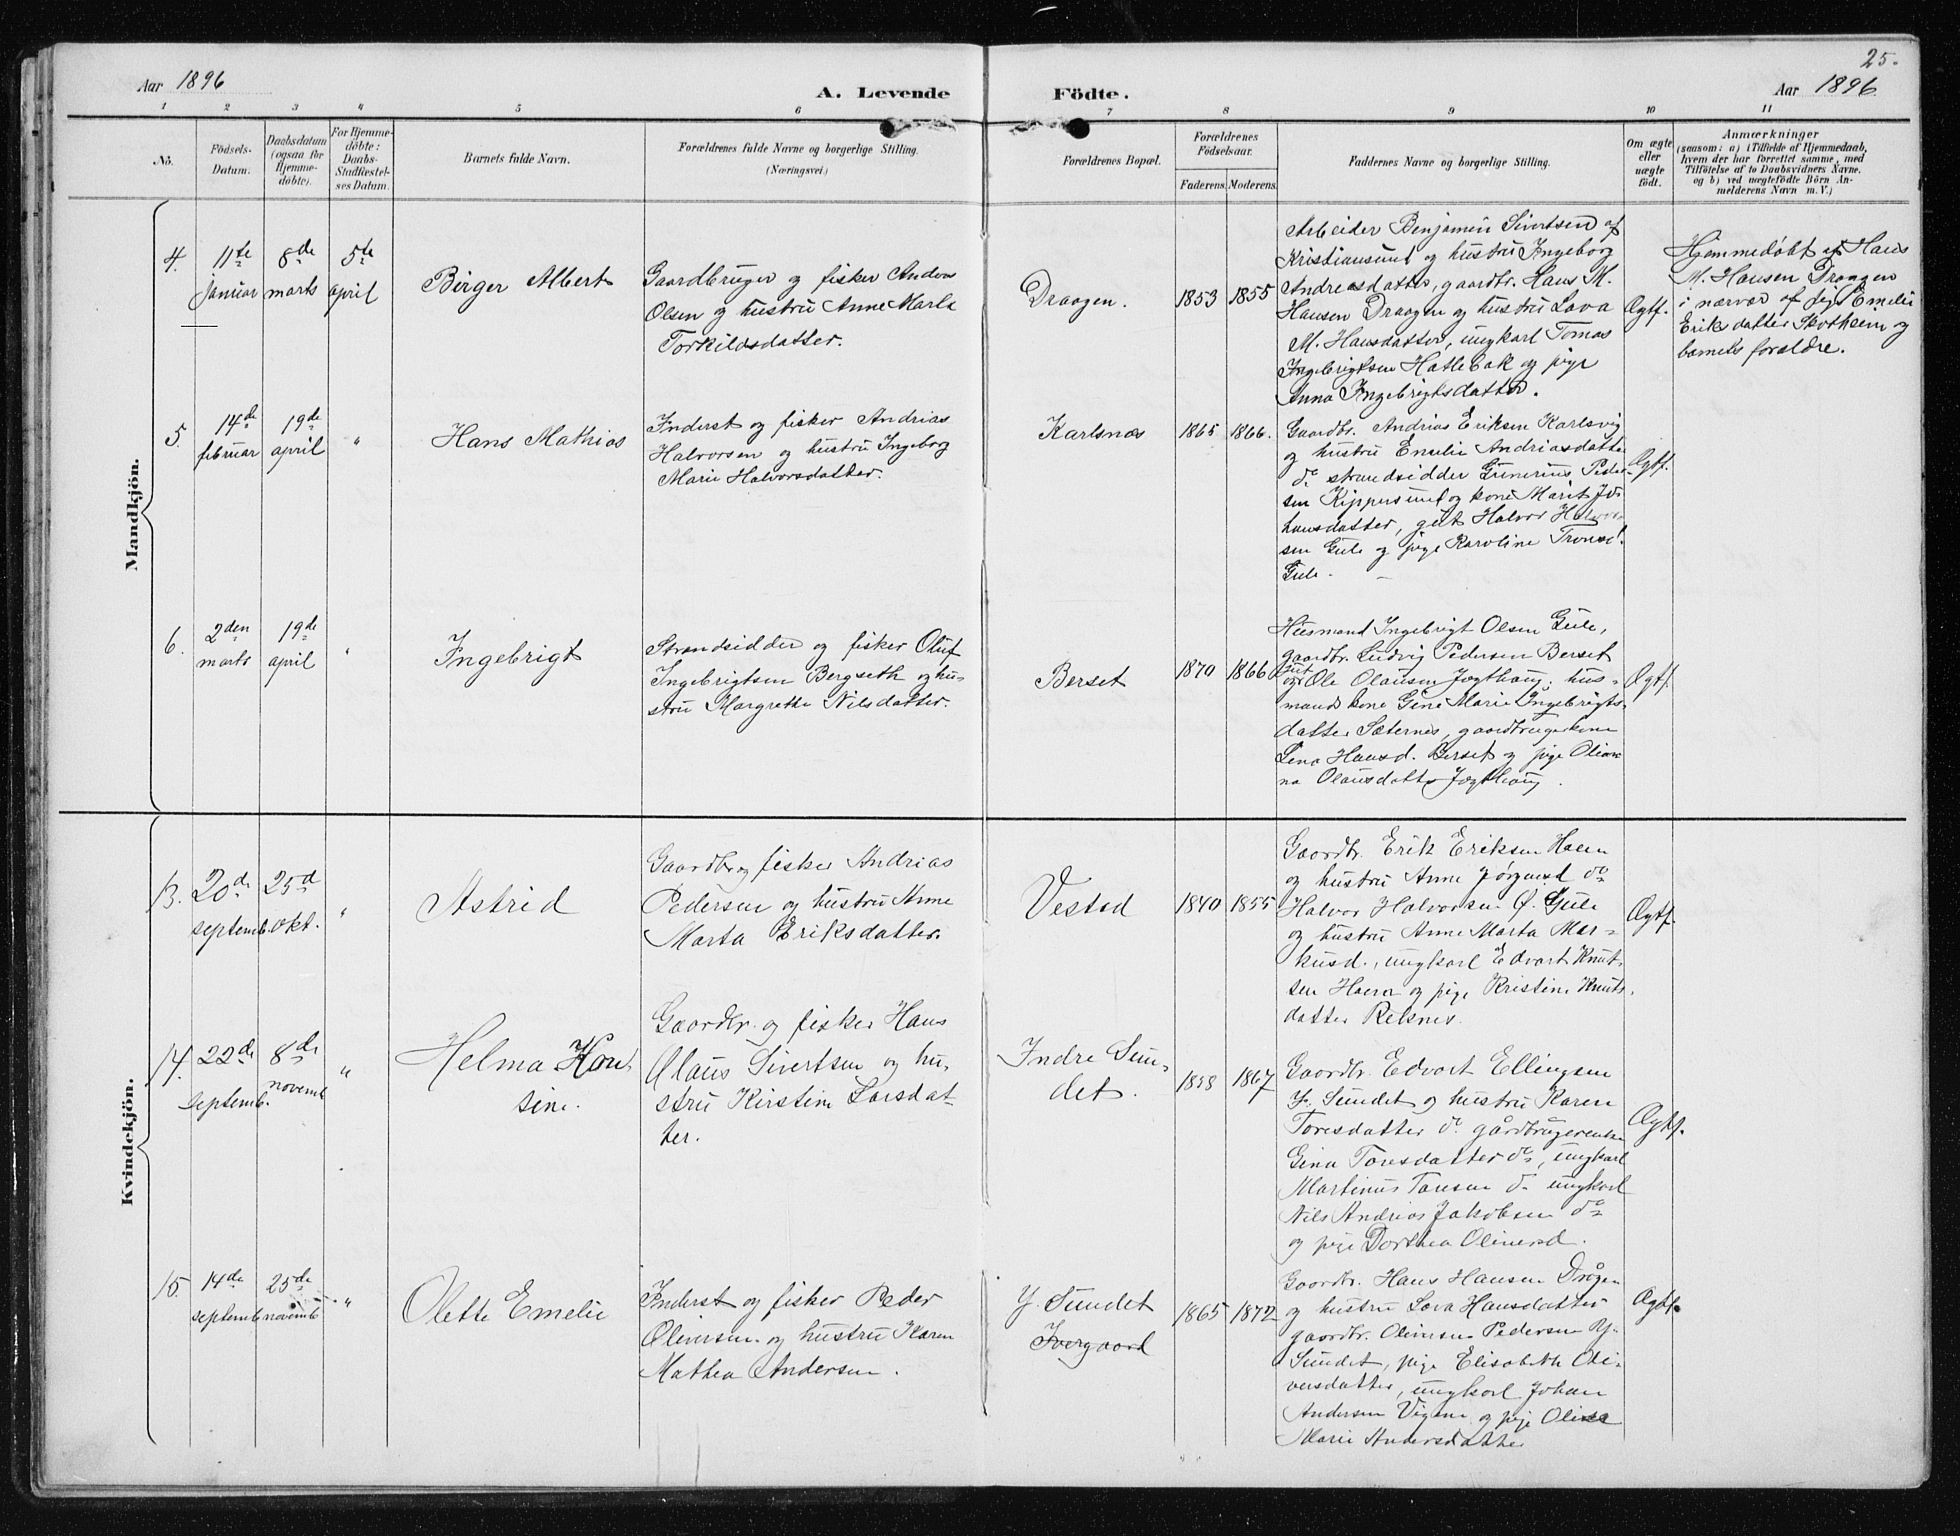 25.
Aar 1896
A. Levende
Födte.
Aar 1896
1 2 3 4 5 6 7 8 9 10 11
No.
Födsels-
Datum.
Daabsdatum
(ogsaa for
Hjemme-
döbte).
For Hjemme-
döbte:
Daabs-
Stadfæstel-
ses Datum.
Barnets fulde Navn.
Forældrenes fulde Navne og borgerlige Stilling.
(Næringsvei.)
Forældrenes Bopæl.
Forældrenes
Födselsaar.
Faderens. Moderens.
Faddernes Navne og borgerlige Stilling.
Om ægte
eller
uægte
födt.
Anmærkninger
(saasom: a) i Tilfælde af Hjemmedaab,
hvem der har forrettet samme, med
Tilföielse af to Daabsvidners Navne.
og b) ved uægtefödte Börn An-
melderens Navn m. V.)
Mandkjön.
4.
11te
januar
8de
marts
5te
april
Birger Albert
Gaardbruger og fisker Anders
Olsen og hustru Anne Marta
Torkildsdatter.
Draagen.
1853 1855
Arbeider Benjamin Sivertsen af
Kristiansund og hustru Ingeborg
Andreasdatter, gaardbr. Hans M.
Hansen Draagen og hustru Lova
M. Hansdatter, ungkarl Tomas
Ingebrigtsen Hatlebak og pige
Anna Ingebrigtsdatter.
Ægtf.
Hjemmedøbt af Hans
M. Hansen Draagen
i nærvær af pige Emelie
Eriksdatter Skotheim og
barnets forældre.
5.
14de
februar
19de
april
"
Hans Mathias
Inderst og fisker Andrias
Halvorsen og hustru Ingeborg
Marie Halvorsdatter.
Karlsnæs
1865 1866.
Gaardbr. Andrias Eriksen Karlsvig
og hustru Emelie Andriasdatter
do strandsidder Gunerius Peder-
sen Kippersund og kone Marit Jo-
hansdatter, gut Halvor Halvor-
sen Gule og pige Karoline Tronsd.
Gule.
Ægtf.
6.
2den
marts
19de
april
"
Ingebrigt
Strandsidder og fisker Oluf
Ingebrigtsen Bergseth og hu-
stru Margrethe Nilsdatter.
Berset
1870 1866
Husmand Ingebrigt Olsen Gule,
gaardbr. Ludvig Pedersen Berset
gut Ole Olausen Jogthaug, hus-
mandskone Gine Marie Ingebrigts-
datter Sæternes, gaardbrugerkone
Lena Hansd. Berset og pige Olian-
na Olausdatter Jogthaug.
Ægtf.
Kvindekjön.
13.
20de
septemb.
25d
okt.
"
Astrid
Gaardbr og fisker Andrias
Pedersen og hustru Anne
Marta Eriksdatter.
Vestad
1840 1855
Gaardbr. Erik Eriksen Haen
og hustru Anne Jørgensd do
Halvor Halvorsen Ø. Gule
og hustru Anne Marta Mar-
kusd., ungkarl Edvart Knut-
sen Haen og pige Kristine Knuts-
datter Reksnes.
Ægtf.
14.
22de
septemb.
8de
novemb
"
Helma Han
sine.
Gaardbr. og fisker Hans
Olaus Sivertsen og hu-
stru Kirstine Larsdat-
ter.
Indre Sun-
det.
1858 1867
Gaardbr. Edvart Ellingsen
Y. Sundet og hustru Karen
Toresdatter do gårdbrugerenke
Gina Toresdatter do, ungkarl
Martinus Toresen do ungkarl
Nils Andrias Jakobsen do
og pige Dorthea Oliversd.
Ægtf.
15.
14de
septemb
25de
novemb
"
Olette Emelie
Inderst og fisker Peder
Oliversen og hustru Karen
Mathea Andersen.
Y. Sundet
Ivergaard
1865 1872
Gaardbr. Hans Hansen Drågen
og hustru Lova Hansdatter
gaardbr. Oliversen Pedersen Y.
Sundet, pige Elisabeth Oli-
versdatter, ungkarl Johan
Andersen Vigen og pige Oline
Marie Andersdatter
Ægtf.